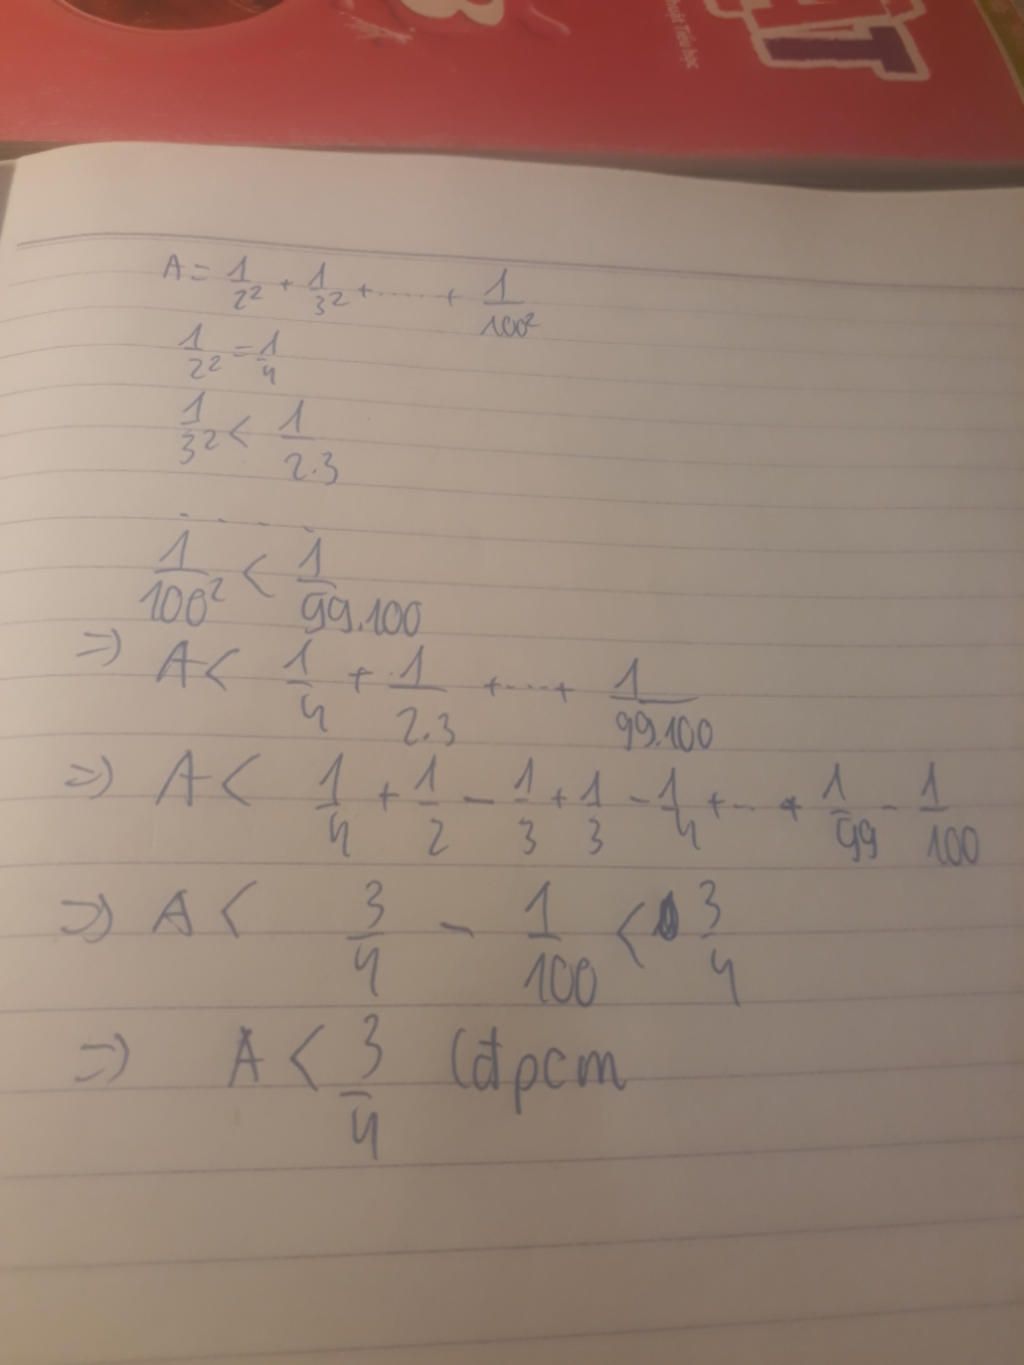 Thuật Tiểu học
A = 1/2² + 1/3² + ..... + 1/100²
1/2² = 1/4
1/3² < 1/2.3
. . . . .
1/100² < 1/99.100
=) A < 1/4 + 1/2.3 + ... + 1/99.100
=) A < 1/4 + 1/2 - 1/3 + 1/3 - 1/4 + .. + 1/99 - 1/100
=) A < 3/4 - 1/100 < 3/4
=) A < 3/4 (đpcm